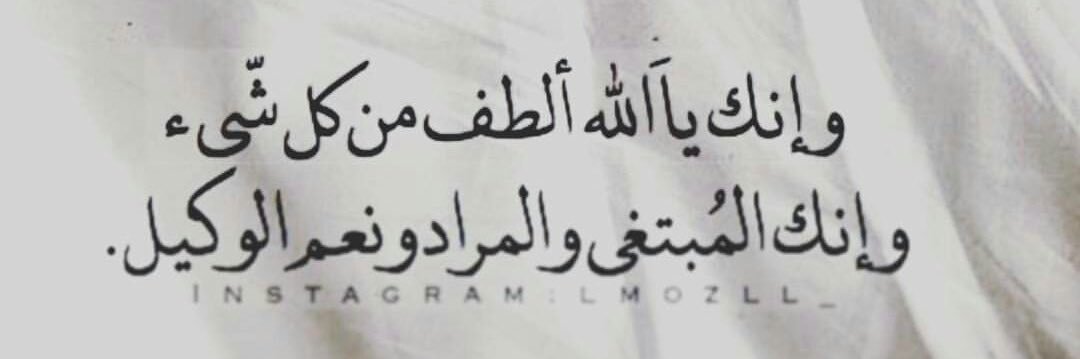 وإنك ياَالله ألطف من كل شّيء
وإنك المُبتغى والمراد ونعم الوكيل.
INSTAGRAM:LMOZLL_